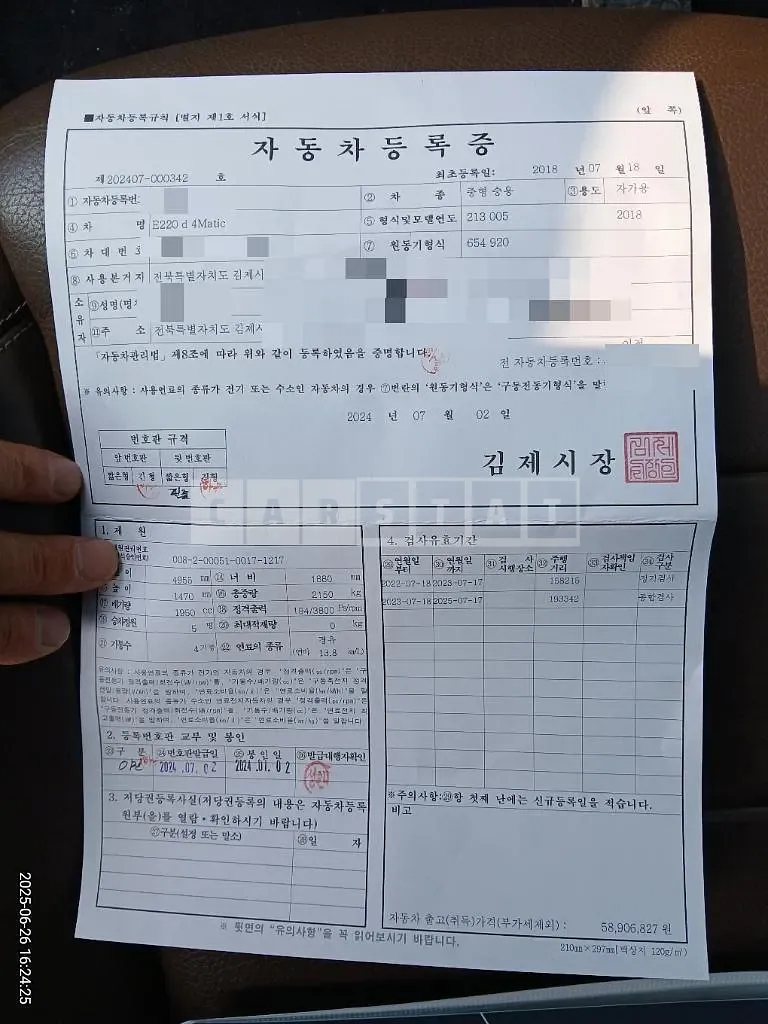 ■자동차등록규칙 [별지 제1호 서식]
(앞 쪽)
자동차등록증
제 202407-000342 호
최초등록일: 2018 년 07 월 18 일
① 자동차등록번 ② 차 종 중형 승용 ③용도 자가용
④ 차 명 E220 d 4Matic ⑤ 형식및모델연도 213 005 2018
⑥ 차 대 번 호 ⑦ 원동기형식 654 920
⑧ 사용본거지 전북특별자치도 김제시
소유자 ⑨성명(명칭
⑪주 소 전북특별자치도 김제시
「자동차관리법」 제8조에 따라 위와 같이 등록하였음을 증명합니다.
전 자동차등록번호 :
※ 유의사항 : 사용연료의 종류가 전기 또는 수소인 자동차의 경우 ⑦번란의 '원동기형식'은 '구동전동기형식'을 말
2024 년 07 월 02 일
번호판 규격
앞 번호판 뒷 번호판
짧은형 긴형 짧은형 긴형
김제시장
CARSTAT
1. 제 원
008-2-00051-0017-1217
4955 mm 너 비 1880 mm
높 이 1470 mm ⑯ 총중량 2150 kg
배기량 1950 cc ⑱ 정격출력 194/3800 Ps/rpm
승차정원 5 명 ⑳ 최대적재량 0 kg
㉑ 기통수 4 기통 ㉒ 연료의 종류 경유
(연비 13.8 km/L)
2. 등록번호판 교부 및 봉인
㉓구 분 ㉔번호판발급일 ㉕봉 인 일 ㉖발급대행자확인
2024.07.02
3. 저당권등록사실(저당권등록의 내용은 자동차등록
원부(을)를 열람・확인하시기 바랍니다)
㉗구분(설정 또는 말소) ㉘일 자
4. 검사유효기간
㉙연월일부터 ㉚연월일까지 ㉛검 사 시행장소 ㉜주행거리 ㉝검사책임자확인 ㉞검사구분
2022-07-18 2023-07-17 158215 정기검사
2023-07-18 2025-07-17 193342 종합검사
※주의사항:㉙항 첫째 난에는 신규등록일을 적습니다.
비고
자동차 출고(취득)가격(부가세제외) : 58,906,827 원
※ 뒷면의 "유의사항"을 꼭 읽어보시기 바랍니다.
210㎜×297㎜[백상지 120g/㎡]
2025-06-26 16:24:25